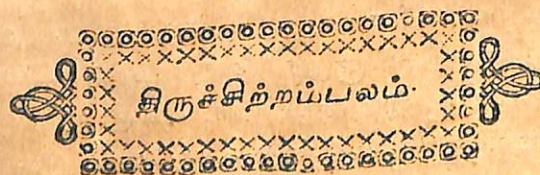 திருச்சிற்றம்பலம்.